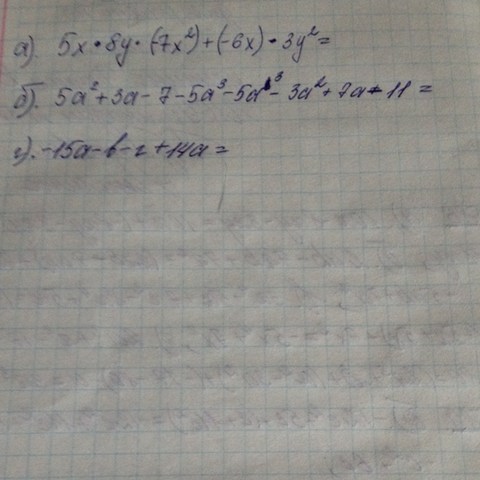 а). 5x·8y·(7x²)+(-6x)·3y²=
б). 5a²+3a-7-5a³-5a³-3a²+7a-11=
г). -15a-b-2+14a=